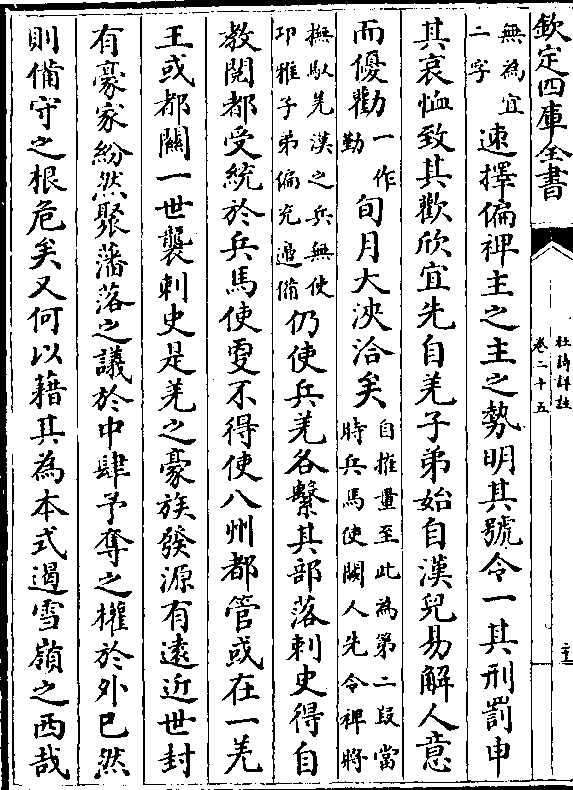 欽定四庫全書
杜詩詳註
卷二十五
無為宜
二字
速擇偏裨主之主之勢明其號令一其刑罰申
其哀恤致其歡欣宜先自羌子弟始自漢兒易解人意
而優勸
一作
勤
旬月大浹洽矣
自推量至此為第二段當
時兵馬使闕人先令裨將
撫馭羌漢之兵無使
邛雅子弟偏充邊備
仍使兵羌各繫其部落刺史得自
教閱都受統於兵馬使更不得使八州都管或在一羌
王或都關一世襲刺史是羌之豪族發源有遠近世封
有豪家紛然聚藩落之議於中肆予奪之權於外已然
則備守之根危矣又何以藉其為本式遏雪嶺之西哉